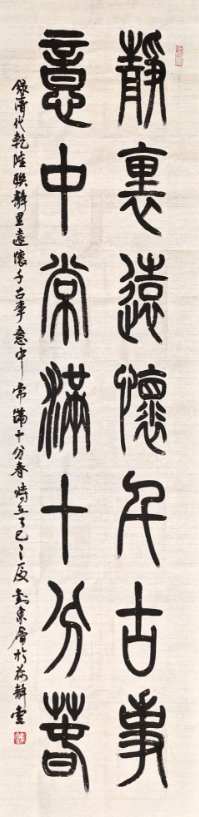 靜裏遠懷千古事
意中常滿十分春
錄清代乾隆聯靜里遠懷千古事意中常滿十分春時